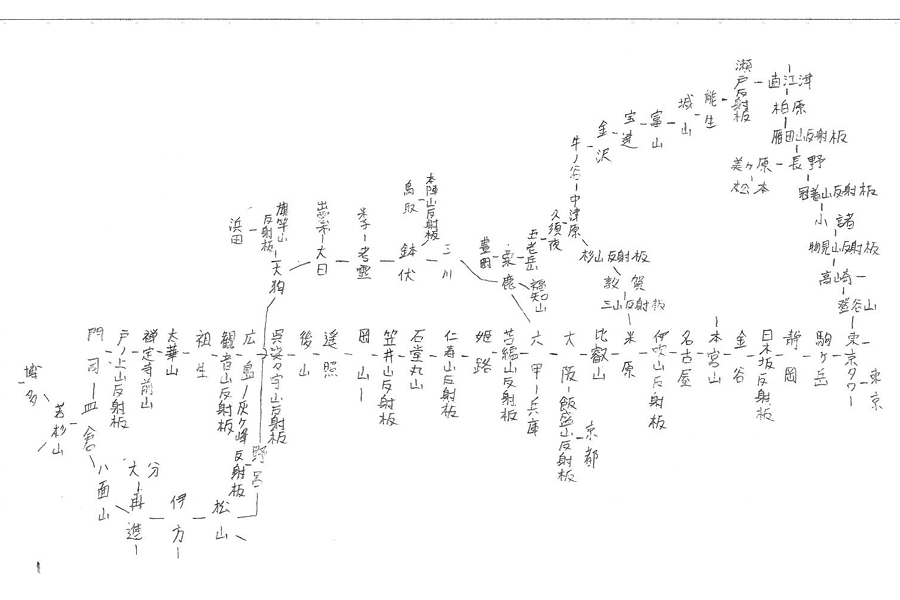 瀬戸反射板
直江津
柏原
雁田山反射板
長野
美ヶ原
松本
冠着山反射板
小諸
物見山反射板
高崎
登谷山
東京タワー
東京
能生
城山
富山
宝達
金沢
牛ノ谷
中津原
久須夜
杉山反射板
敦賀
三山反射板
米原
五老岳
福知山
粟鹿
豊岡
三川
本陣山反射板
鳥取
鉢伏
米子
老霊
出雲
大日
旗竿山反射板
浜田
大狗
駒ヶ岳
静岡
日本坂反射板
金谷
本宮山
名古屋
伊吹山反射板
比叡山
大阪
飯盛山反射板
京都
六甲
兵庫
苫編山反射板
姫路
仁寿山反射板
石堂丸山
笠井山反射板
岡山
遥照
後山
呉娑々宇山反射板
広島
灰ヶ峰反射板
野呂
観音山反射板
祖生
太華山
禅定寺前山
戸ノ上山反射板
門司
皿倉
若杉山
博多
八面山
大分
再進
伊方
松山